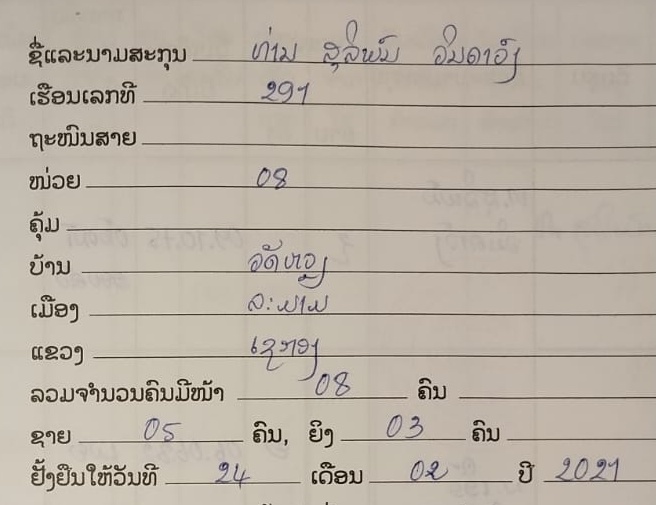 ຊື່ແລະນາມສະກຸນ ທ່ານ ສຸລິພົນ ອິນດາວົງ
ເຮືອນເລກທີ 291
ຖະໜົນສາຍ
ໜ່ວຍ 08
ຄຸ້ມ
ບ້ານ ວັດຫຼວງ
ເມືອງ ລະມາມ
ແຂວງ ເຊກອງ
ລວມຈຳນວນຄົນມີໜ້າ 08 ຄົນ
ຊາຍ 05 ຄົນ, ຍິງ 03 ຄົນ
ຢັ້ງຢືນໃຫ້ວັນທີ 24 ເດືອນ 02 ປີ 2021